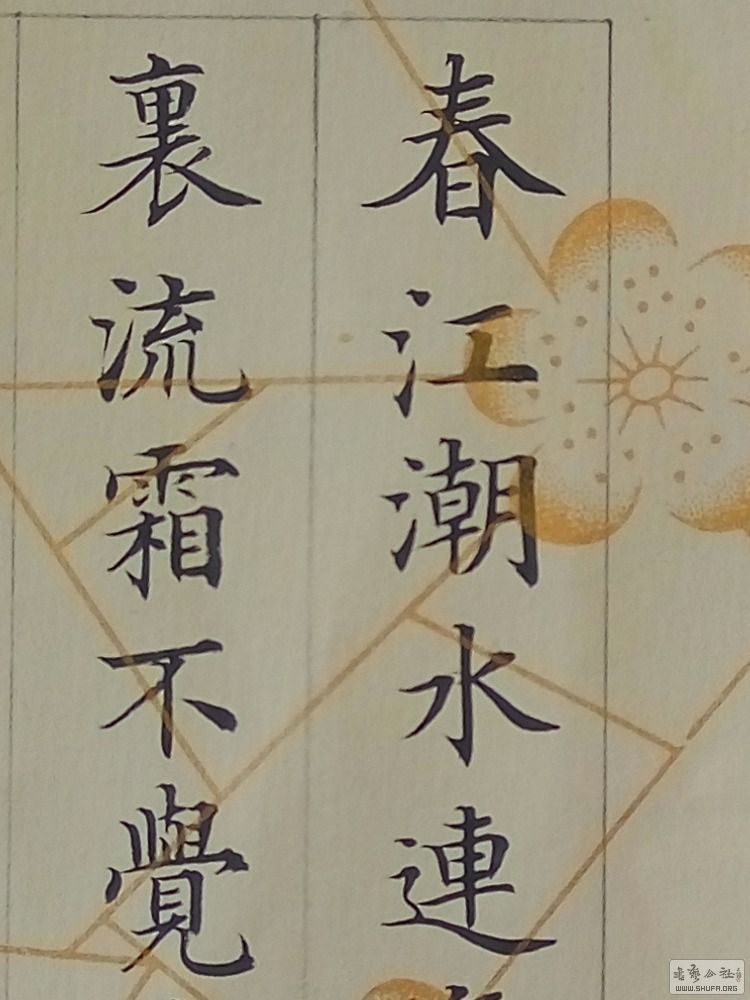 春江潮水連
裏流霜不覺
WWW.SHUFA.ORG